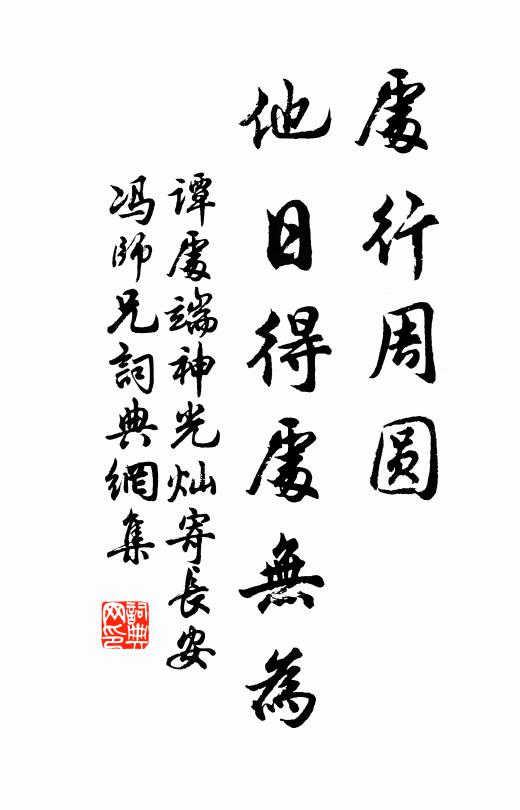 處行周圆
他日得處無為
谭處端神光灿寄長安
冯師兄詞典網集
詞典网印